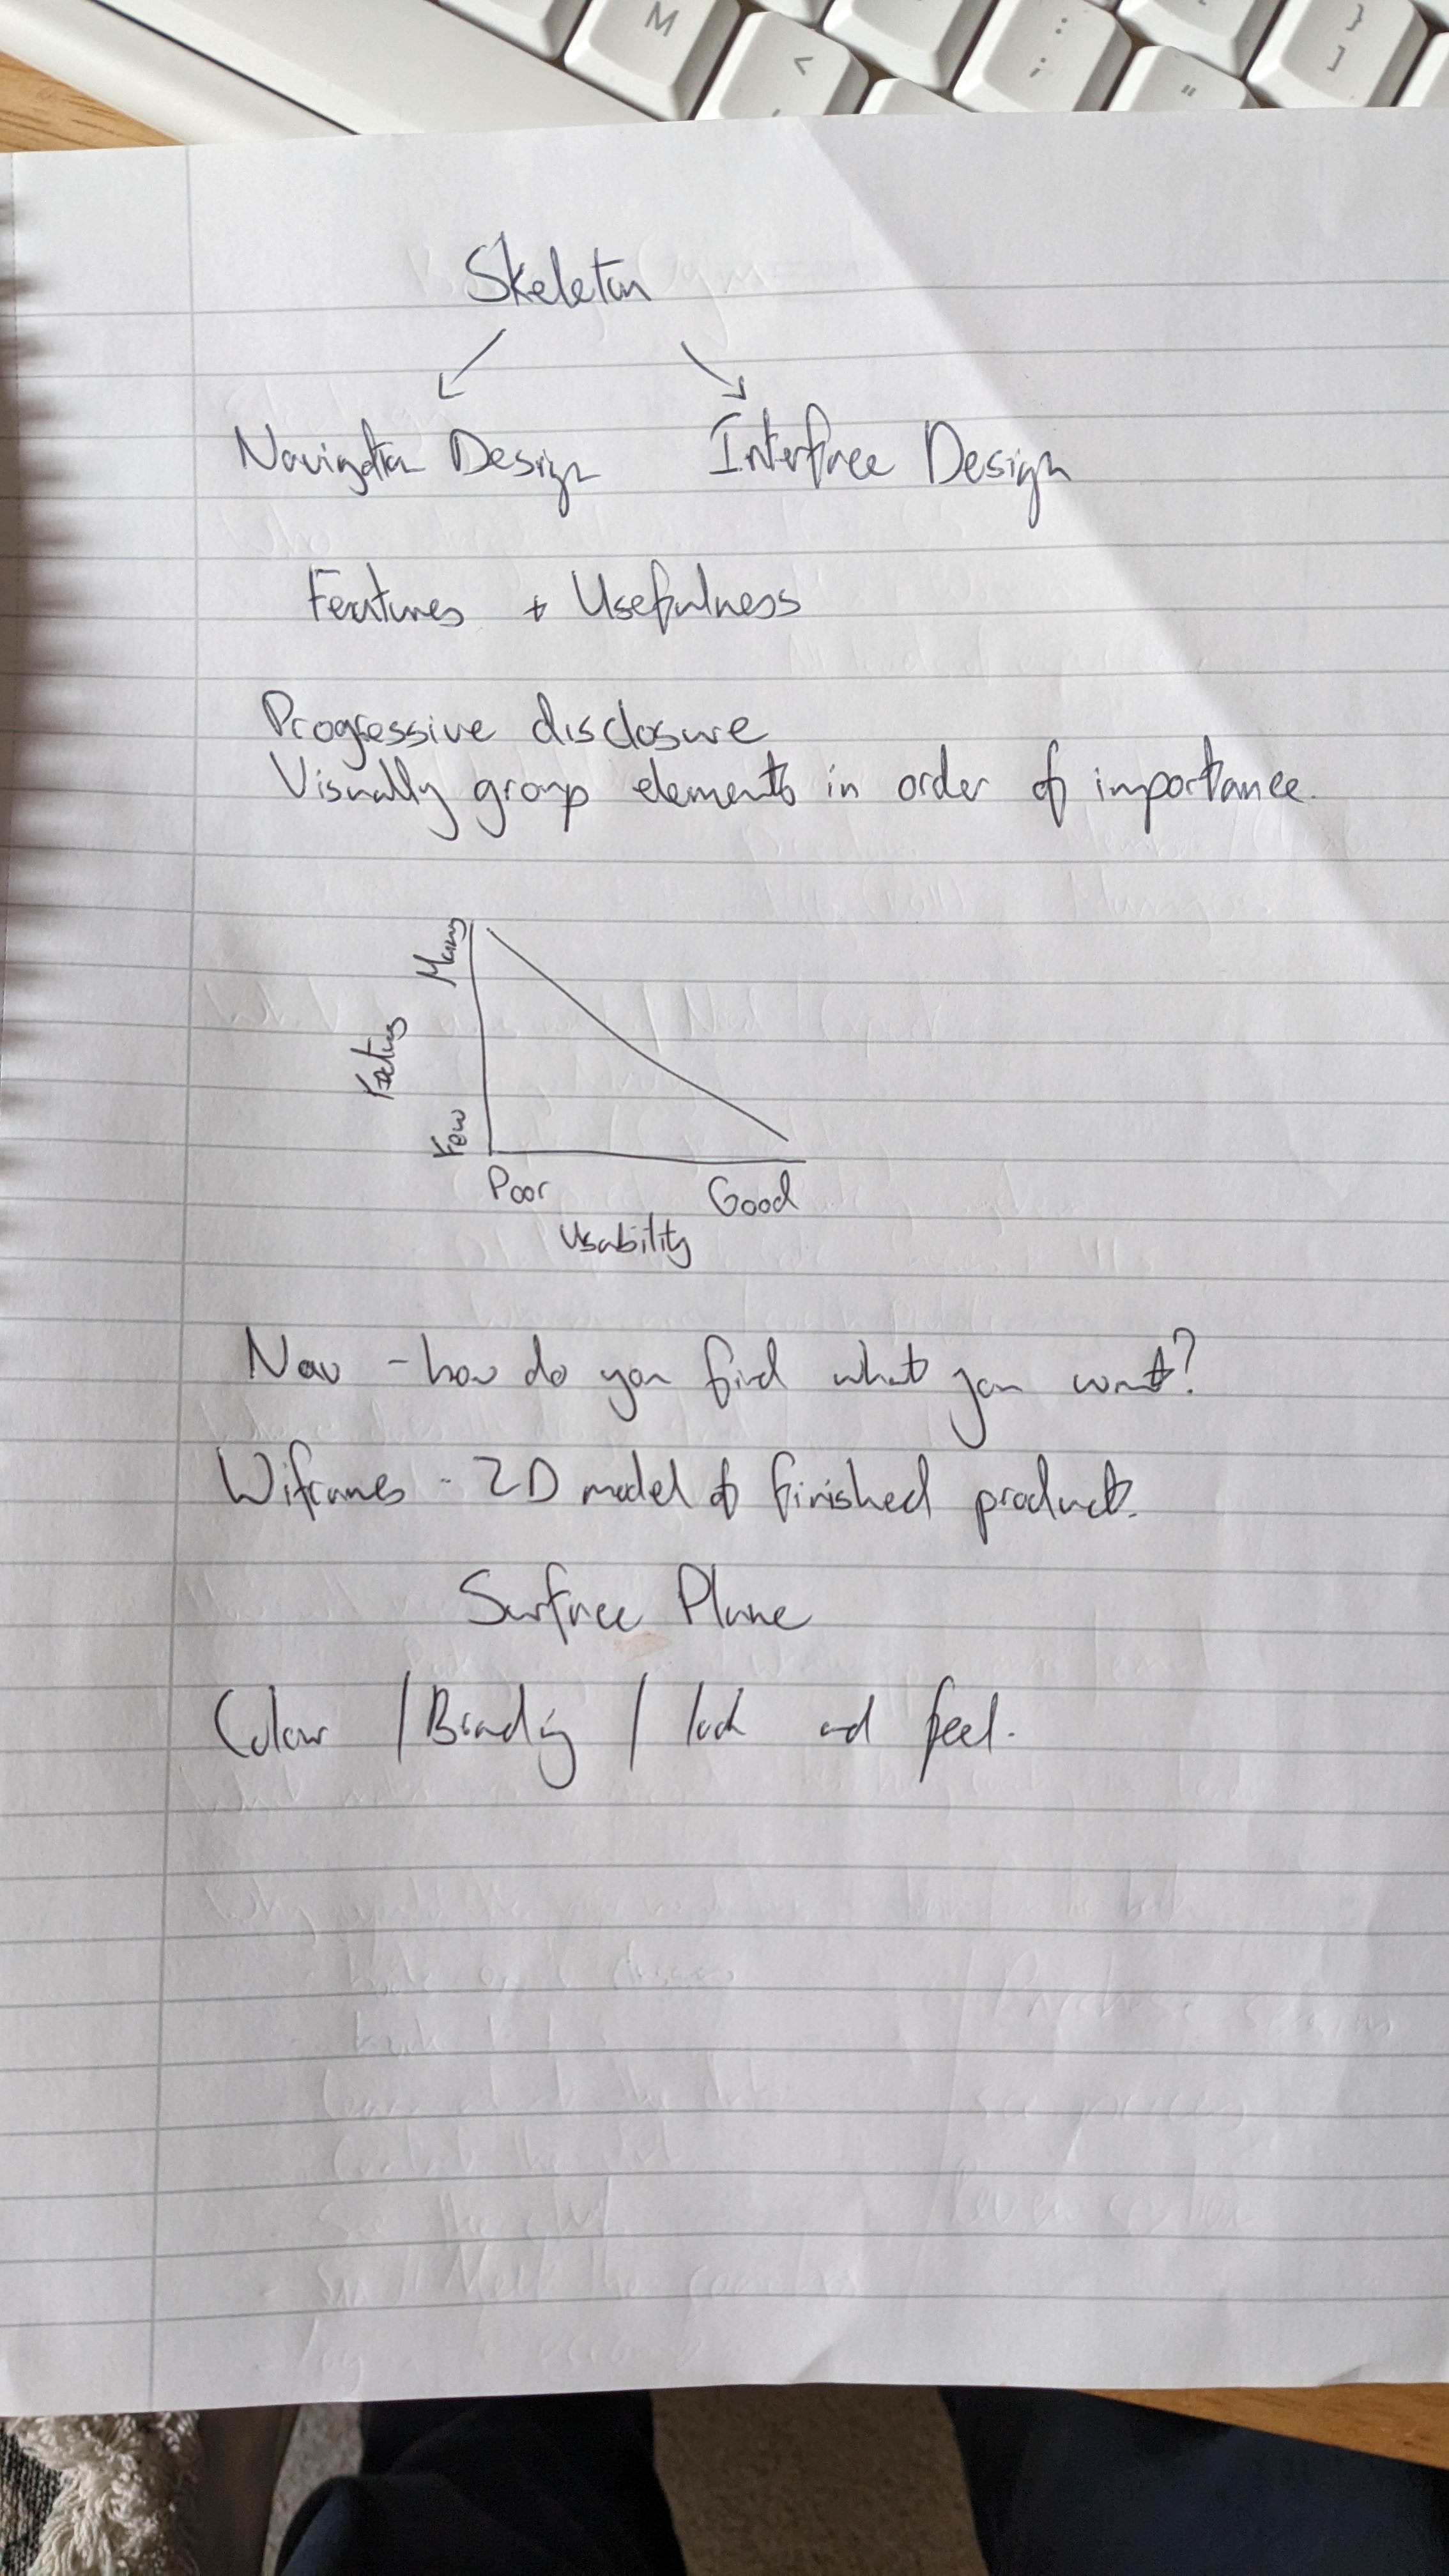 M
<
,
:
;
"
}
]
Skeleton
Navigation Design Interface Design
Features + Usefulness
Progressive disclosure
Visually group elements in order of importance.
Many
Features
Few
Poor Good
Usability
Nav - how do you find what you want?
Wiframes - 2D model of finished product.
Surface Plane
Colour / Branding / look and feel.